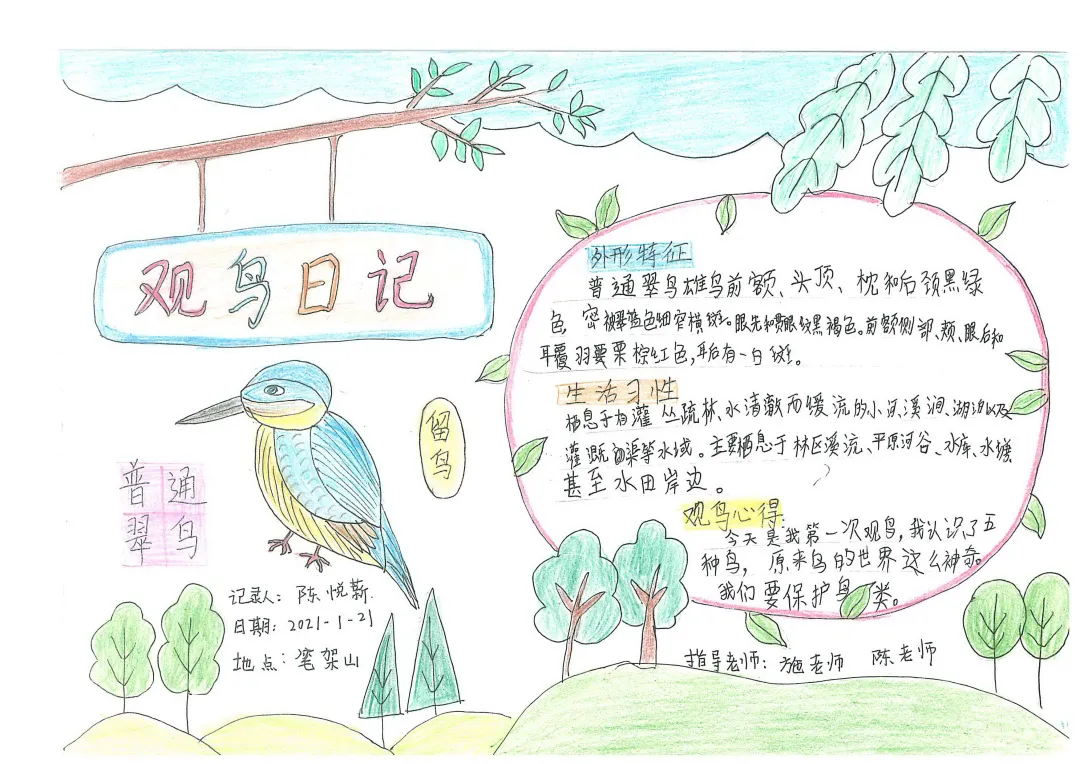 观鸟日记
留鸟
普通
翠鸟
记录人: 陈悦菥
日期: 2021-1-21
地点: 笔架山
外形特征
普通翠鸟雄鸟前额、头顶、枕和后颈黑绿
色,密被翠蓝色细窄横斑。眼先和贯眼纹黑褐色。前额侧部、颊、眼后和
耳覆羽要栗棕红色,耳后有一白斑。
生活习性
栖息于有灌丛疏林、水清澈而缓流的小河、溪涧、湖泊以及
灌溉渠等水域。主要栖息于林区溪流、平原河谷、水库、水塘
甚至水田岸边。
观鸟心得:
今天是我第一次观鸟,我认识了五
种鸟,原来鸟的世界这么神奇。
我们要保护鸟类。
指导老师: 施老师 陈老师